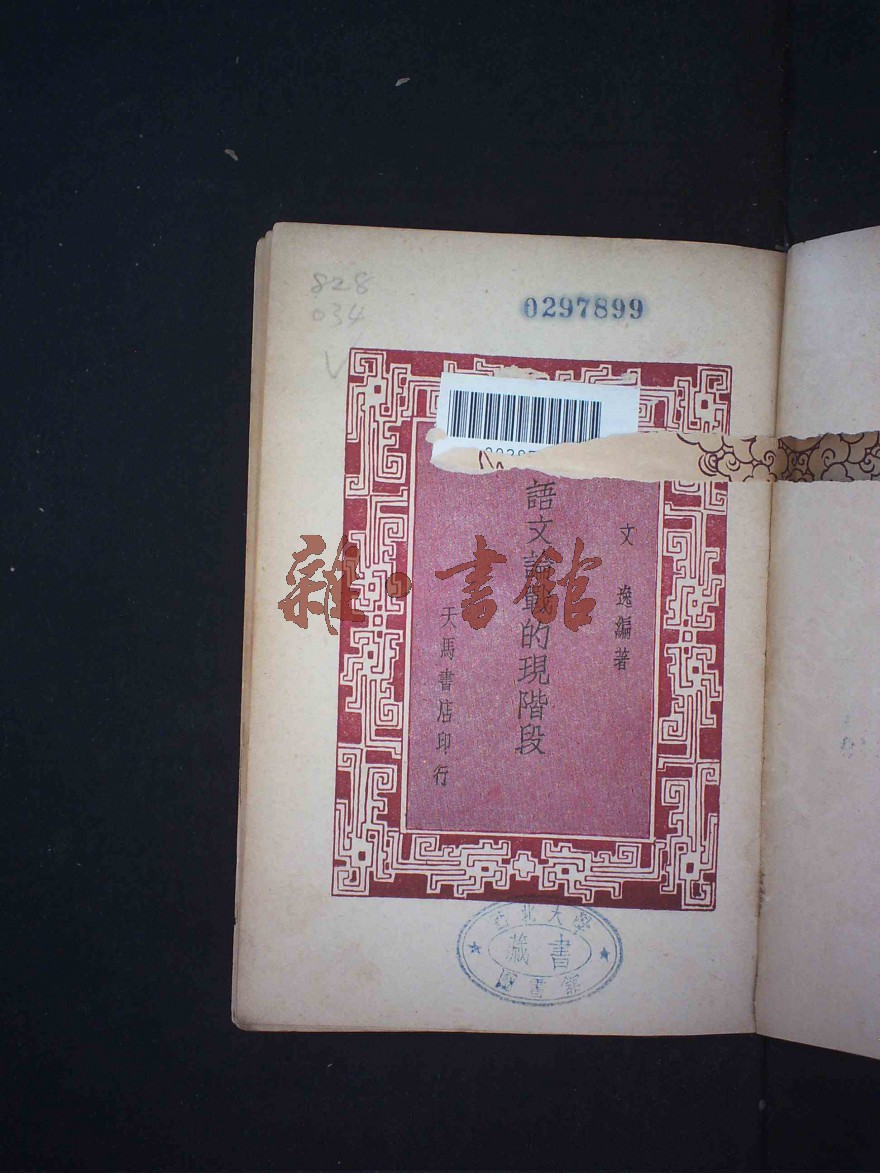 828
034
0297899
文逸編著
語文論戰的現階段
天馬書店印行
雜·書館
北大學
藏書
圖書館